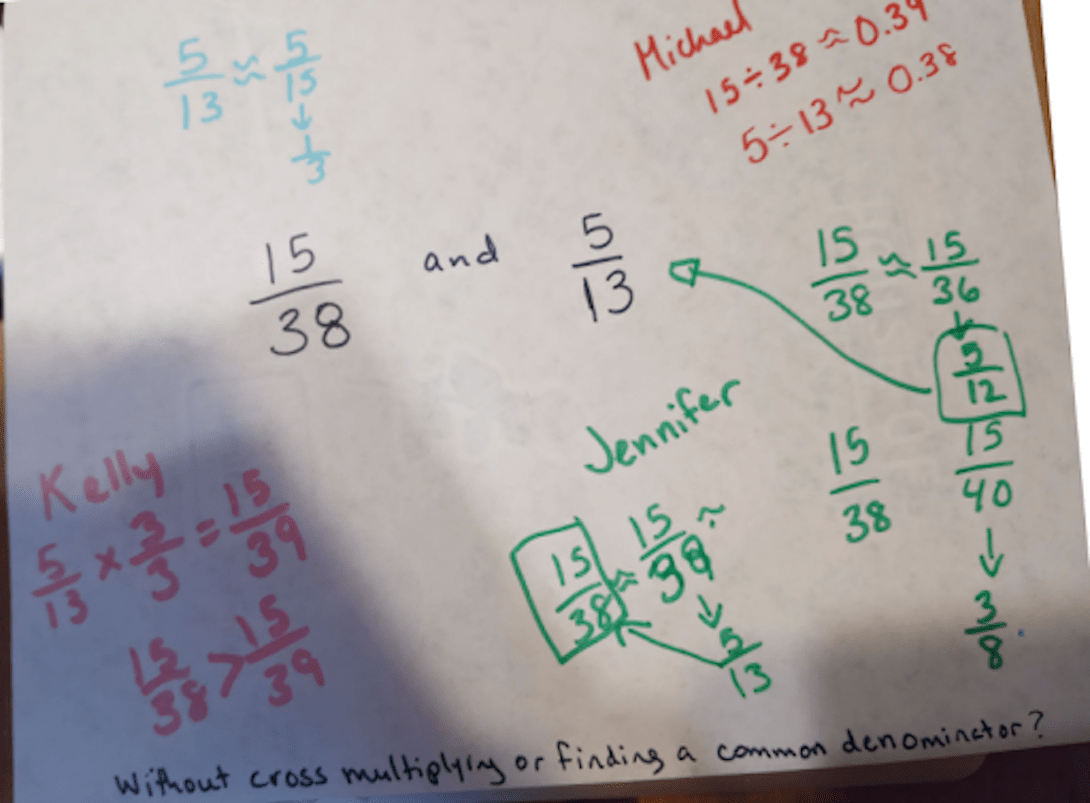 5/13 ≈ 5/15
↓
1/3
Michael
15÷38 ≈ 0.39
5÷13 ≈ 0.38
15/38 and 5/13
15/38 ≈ 15/36
↓
5/12
15/38 15/40
↓
3/8
Jennifer
15/38 ≈ 15/39 ≈
↓
5/13
Kelly
5/13 × 3/3 = 15/39
15/38 > 15/39
Without cross multiplying or finding a common denominator?